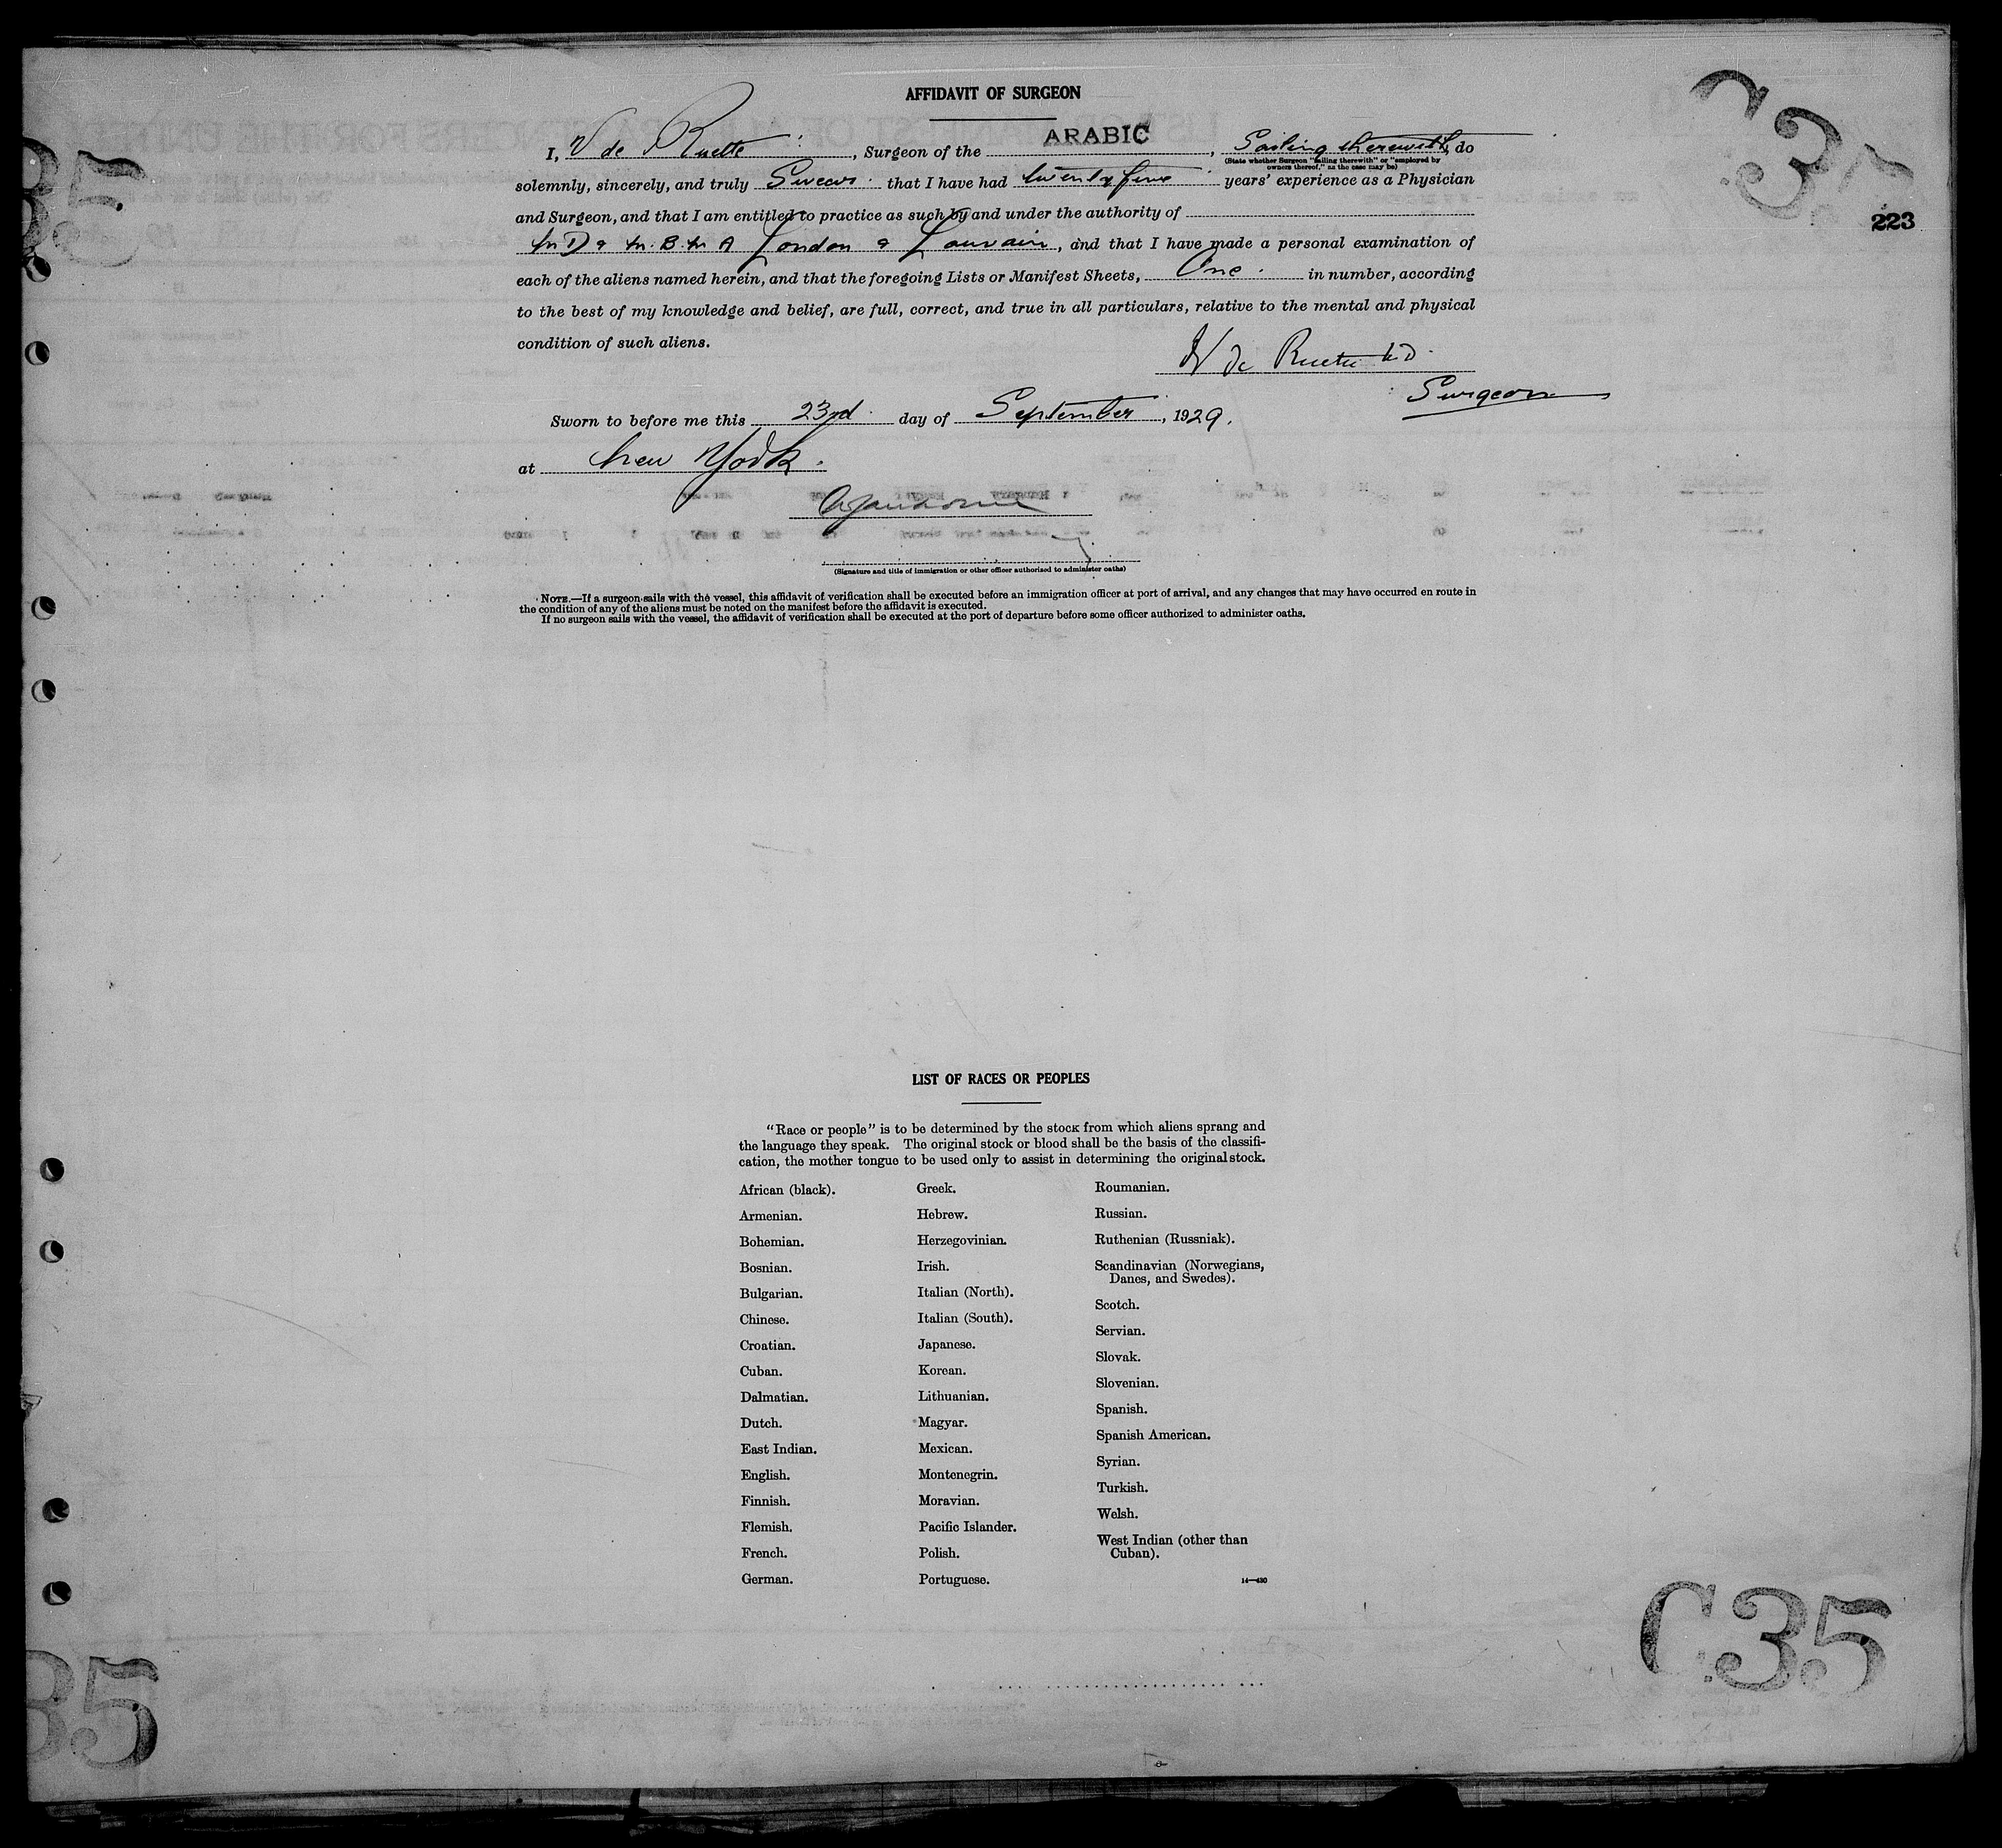 AFFIDAVIT OF SURGEON
I, V de Ruette, Surgeon of the ARABIC, Sailing therewith, do
(State whether Surgeon "sailing therewith" or "employed by
owners thereof," as the case may be)
solemnly, sincerely, and truly Swear that I have had twenty five years' experience as a Physician
and Surgeon, and that I am entitled to practice as such by and under the authority of
M D & M. B. M A London & Louvain, and that I have made a personal examination of
each of the aliens named herein, and that the foregoing Lists or Manifest Sheets, One in number, according
to the best of my knowledge and belief, are full, correct, and true in all particulars, relative to the mental and physical
condition of such aliens.
V de Ruette M.D.
Surgeon
Sworn to before me this 23rd day of September, 1929.
at New York.
(Signature and title of immigration or other officer authorized to administer oaths)
NOTE.—If a surgeon sails with the vessel, this affidavit of verification shall be executed before an immigration officer at port of arrival, and any changes that may have occurred en route in
the condition of any of the aliens must be noted on the manifest before the affidavit is executed.
If no surgeon sails with the vessel, the affidavit of verification shall be executed at the port of departure before some officer authorized to administer oaths.
C35
223
35
LIST OF RACES OR PEOPLES
"Race or people" is to be determined by the stock from which aliens sprang and
the language they speak. The original stock or blood shall be the basis of the classifi-
cation, the mother tongue to be used only to assist in determining the original stock.
African (black).
Armenian.
Bohemian.
Bosnian.
Bulgarian.
Chinese.
Croatian.
Cuban.
Dalmatian.
Dutch.
East Indian.
English.
Finnish.
Flemish.
French.
German.
Greek.
Hebrew.
Herzegovinian.
Irish.
Italian (North).
Italian (South).
Japanese.
Korean.
Lithuanian.
Magyar.
Mexican.
Montenegrin.
Moravian.
Pacific Islander.
Polish.
Portuguese.
Roumanian.
Russian.
Ruthenian (Russniak).
Scandinavian (Norwegians,
Danes, and Swedes).
Scotch.
Servian.
Slovak.
Slovenian.
Spanish.
Spanish American.
Syrian.
Turkish.
Welsh.
West Indian (other than
Cuban).
14—430
C35
35